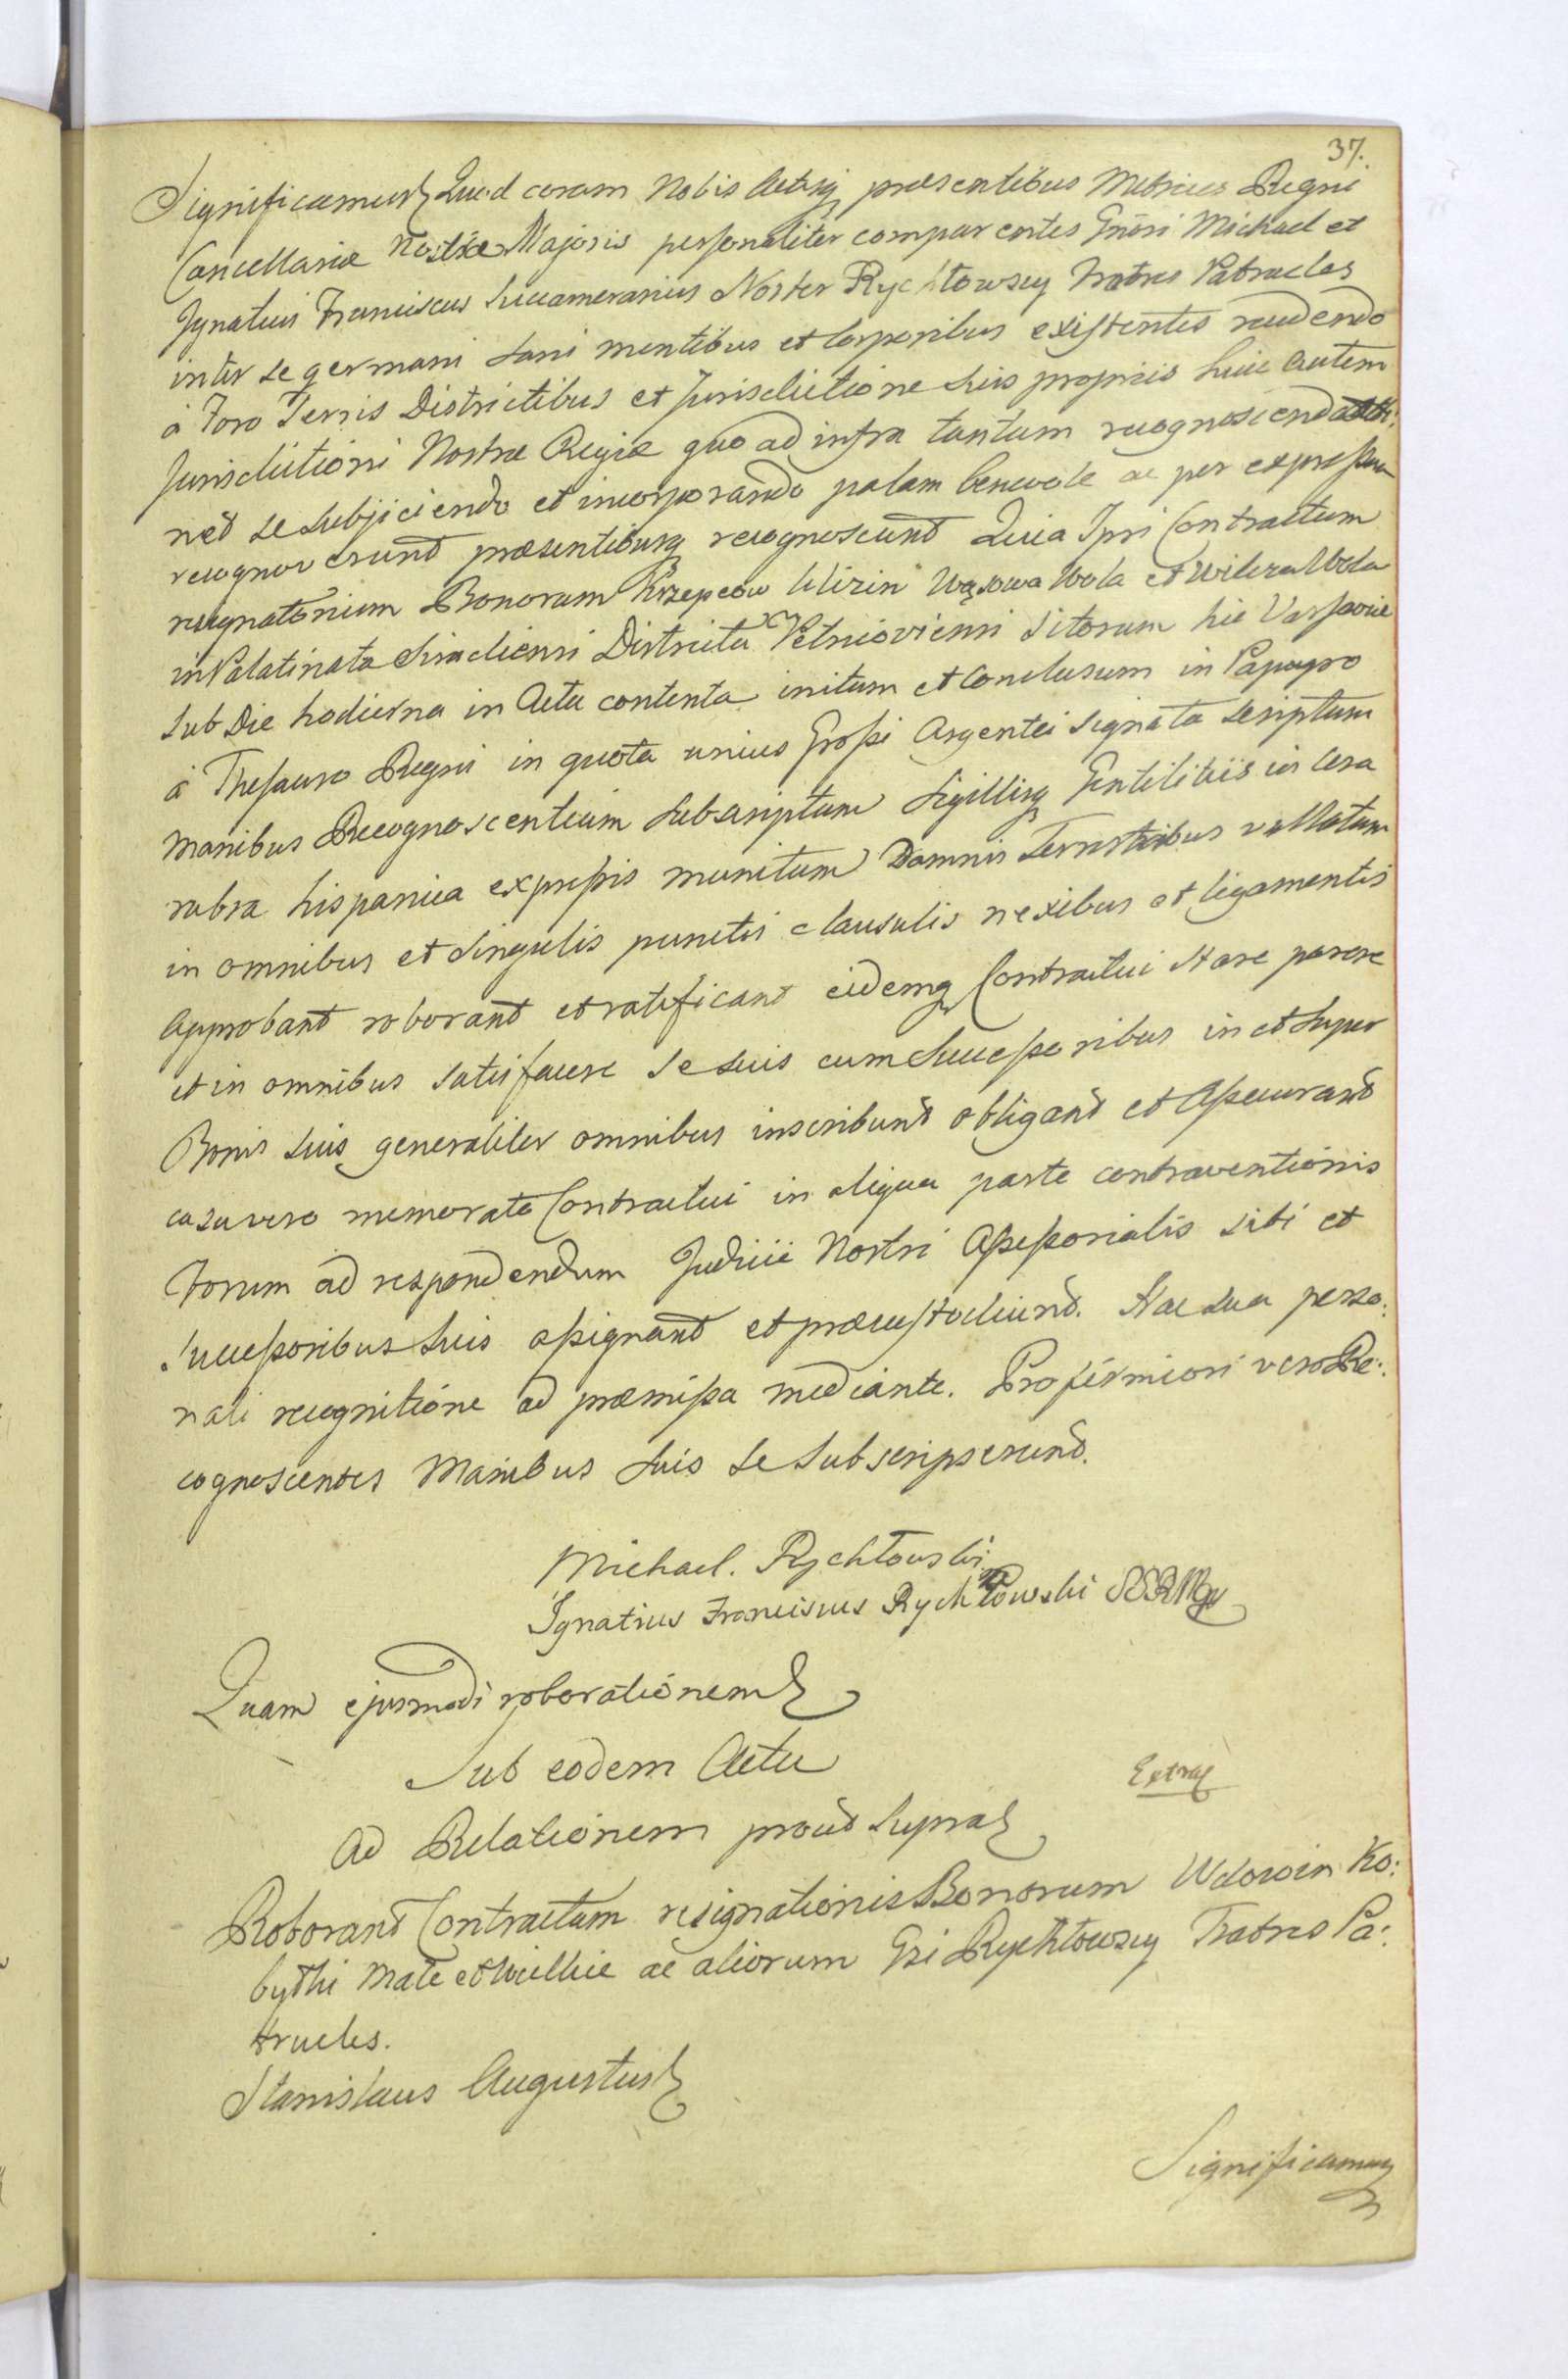 37.
Significamus Quod coram Nobis Actisq præsentibus Metrices Regni
Cancellariæ Nostræ Majoris personaliter comparentes Gnosi Michael et
Ignatius Franciscus Succamerarius Noster Rychłowscy Fratres Patrueles
inter se germani Sani mentibus et Corporibus existentes recedendo
à Foro Terris Districtibus et Jurisdictione Suis propriis huic autem
Jurisdictioni Nostræ Regiæ quo ad infra tantum recognoscenda atti:
net se Subjiciendo et incorporando palam benevole ac per expressum
recognoverunt præsentibusq recognoscunt Quia Ipsi Contractum
resignatorium Bonorum Krzepcow Wąsowa Wola et Wola
in Palatinatu Siradiensi Districtu Sitorum hic Varsaviæ
Sub Die hodierna in Actu contenta initum et Conclusum in Papyro
à Thesauro Regni in quota unius Grossi Argentei Signata Scriptum
Manibus Recognoscentium Subscriptum Sigillisq Gentilitiis in Cera
rubra hispanica expressis munitum Damnis Terrestribus vallatum
in omnibus et Singulis punctis clausulis nexibus et ligamentis
Approbant roborant et ratificant eidemq Contractui Stare parere
et in omnibus Satisfacere Se Suis cum Successoribus in et Super
Bonis Suis generaliter omnibus inscribunt obligant et Assecurant
casu vero memorato Contractui in aliqua parte contraventionis
Forum ad respondendum Judicii Nostri Assessorialis Sibi et
Successoribus Suis assignant et præcustodiunt. Hac Sua perso:
nali recognitione ad præmissa mediante. Pro firmiori vero Re:
cognoscentes Manibus Suis Se Subscripserunt.
Michael. Rychłowski
Ignatius Franciscus Rychłowski
Quam ejusmodi roborationem
Sub eodem Actu
Extrad
Ad Relationem prout Supra
Roborant Contractum resignationis Bonorum Wdowin Ko:
byłki Małe et Wielkie ac aliorum Gsi Rychłowscy Fratres Pa:
trueles.
Stanislaus Augustus
Significamus